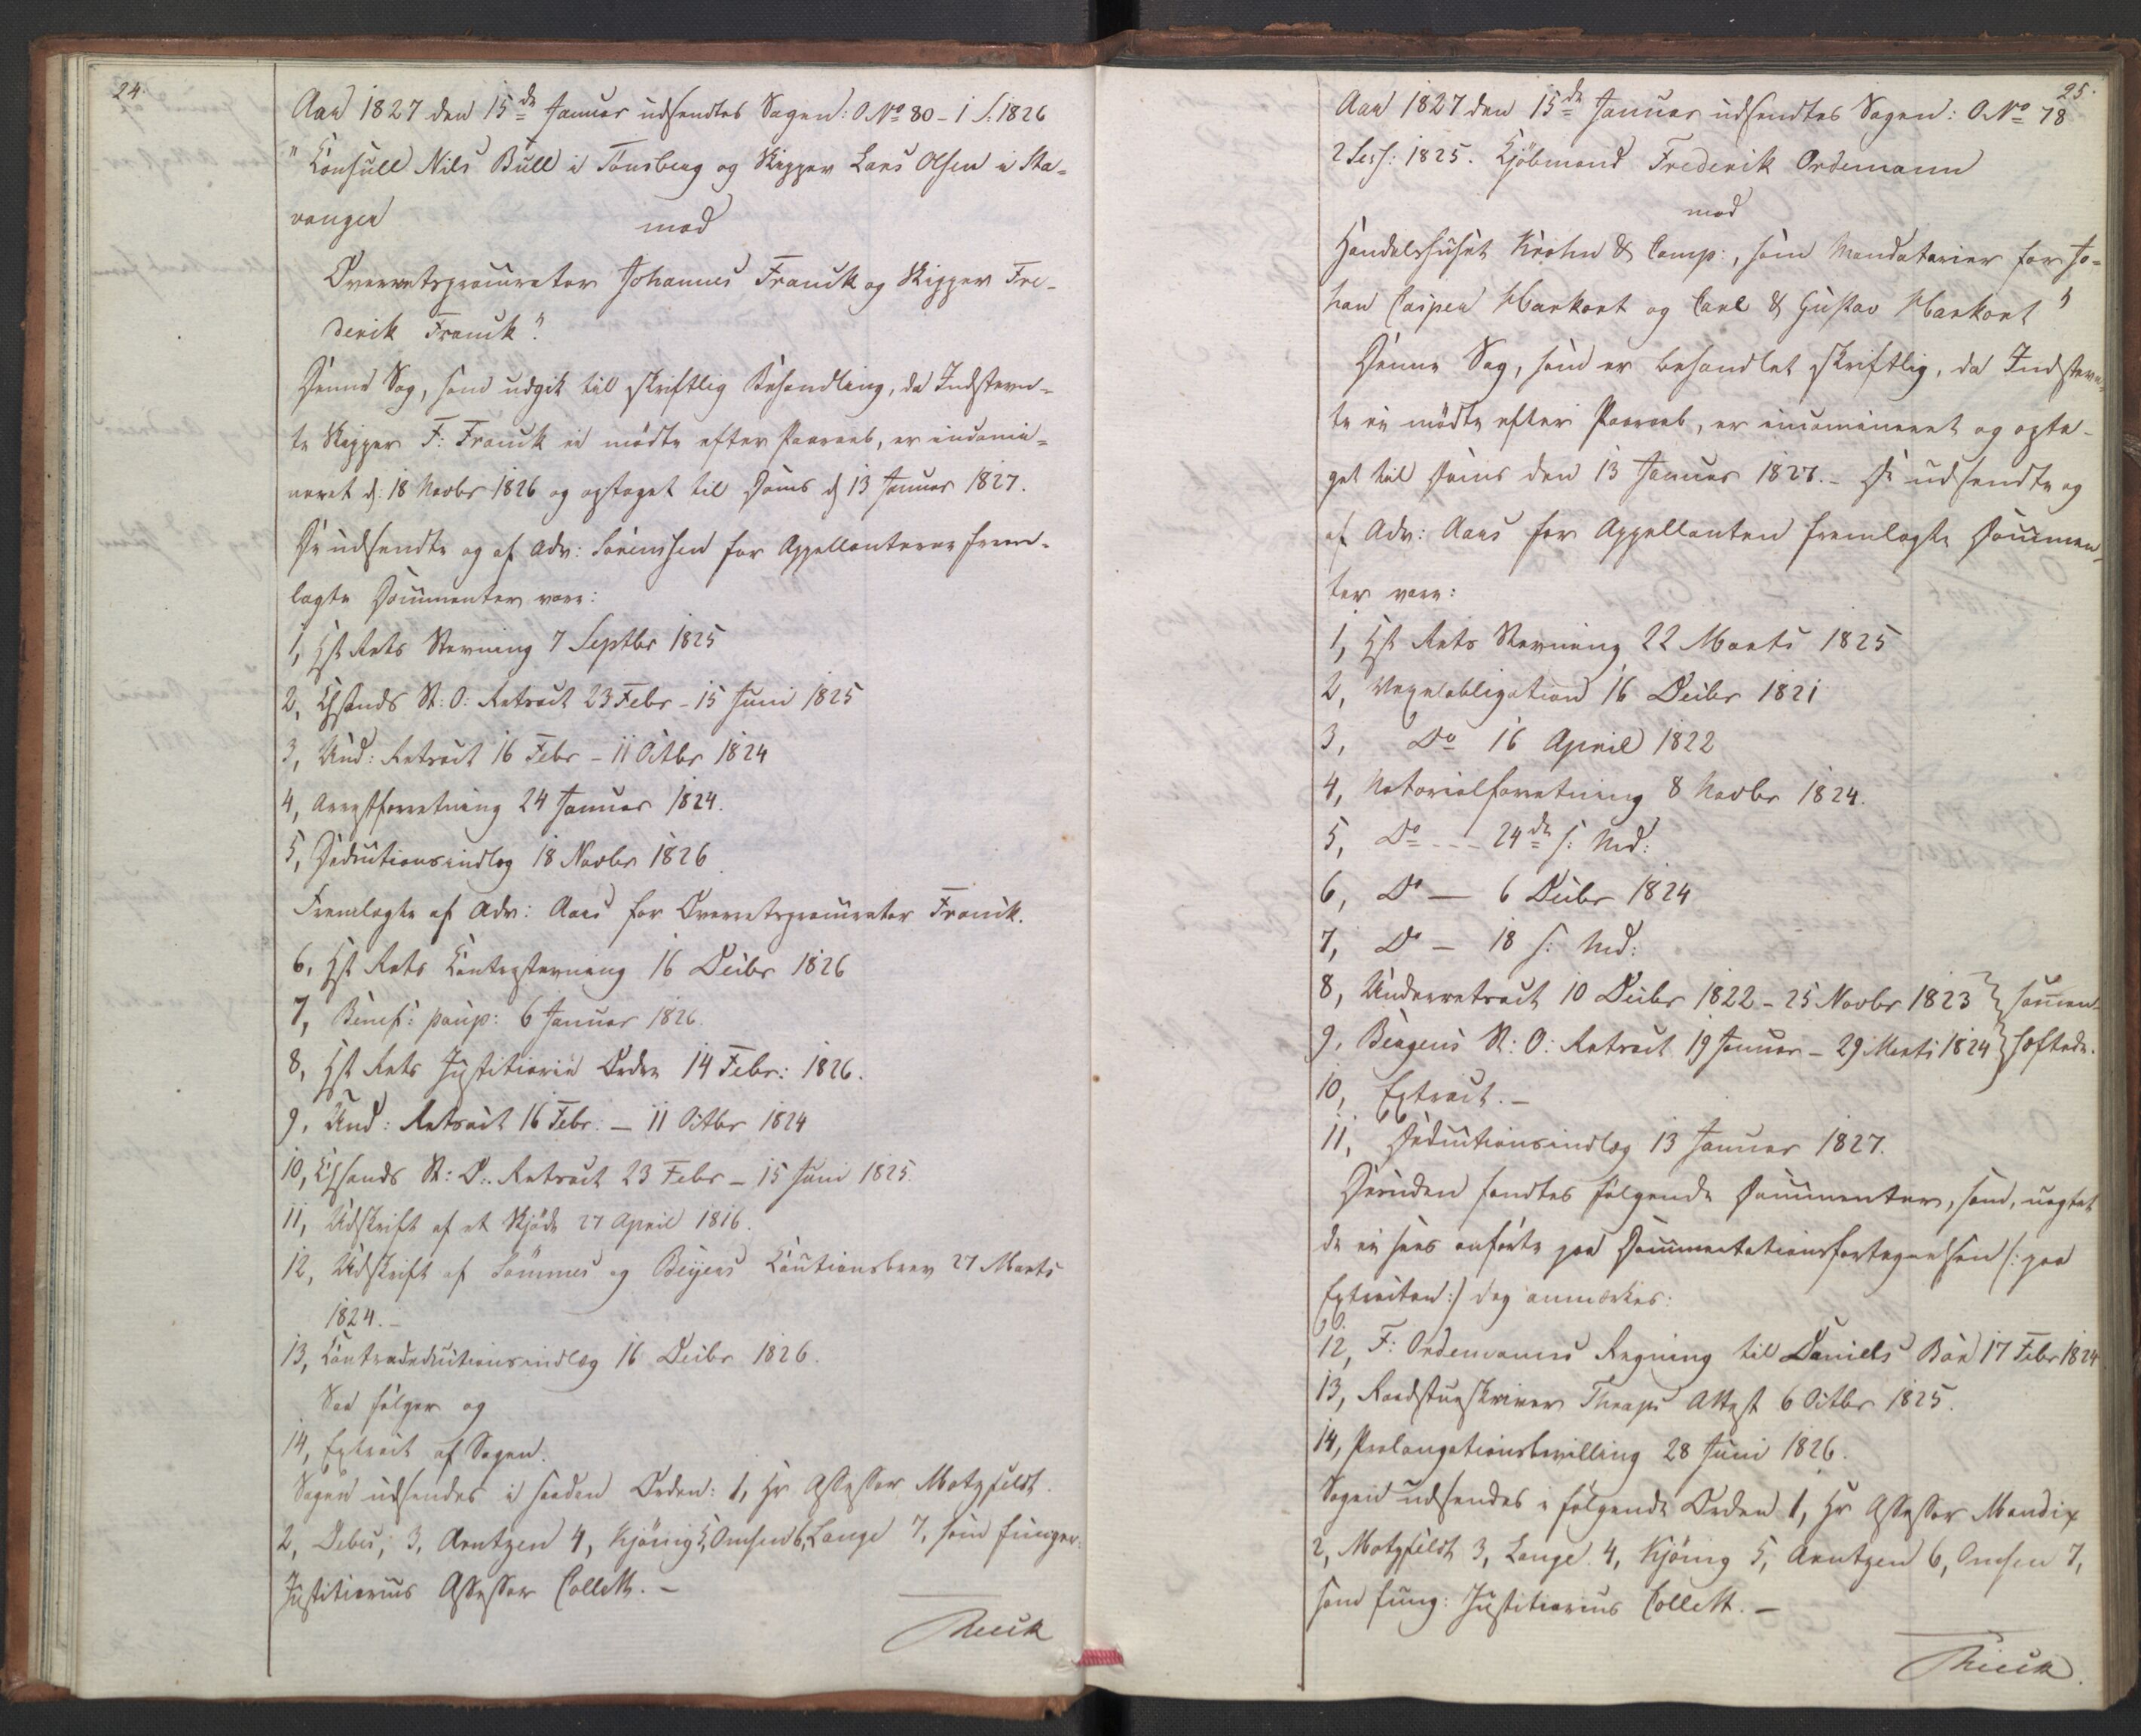 24
Aar 1827 den 15de Januar udsendtes Sagen: O. No 80 - 1 S: 1826
"Consull Nils Bull i Tønsberg og Skipper Lars Olsen i Sta-
vanger mod
Overretsprocurator Johannes Franck og Skipper Fre-
derik Franck".
Denne Sag, som udgik til skriftlig Behandling, da Indstevn-
te Skipper F: Franck ei mødte efter Paaraab, er incami-
neret d: 18 Novbr 1826 og optaget til Doms d 13 Januar 1827.
De udsendte og af Adv: Sörenssen for Appellanterne frem-
lagte Documenter vare:
1, Hst Rets Stevning 7 Septbr 1825
2, Chsands St: O: Retsact 23 Febr - 15 Juni 1825
3, Und: Retsact 16 Febr - 11 Octbr 1824
4, Arrestforretning 24 Januar 1824.
5, Deductionsindlæg 18 Novbr 1826.
Fremlagte af Adv: Aars for Overretsprocurator Franck.
6, Hst Rets Contrastevning 16 Decbr 1826
7, Benef: paup: 6 Januar 1826.
8, Hst Rets Justitiarii Ordre 14 Febr: 1826.
9, Und: Retsact 16 Febr. - 11 Octbr 1824
10, Chsands St: O: Retsact 23 Febr - 15 Juni 1825.
11, Udskrift af et Skjøde 27 April 1816.
12, Udskrift af Sömmes og Beyers Cautionsbrev 27 Marts
1824.-
13, Contradeductionsindlæg 16 Decbr 1826.
Saa følger og
14, Extract af Sagen.
Sagen udsendes i saadan Orden: 1, Hr Assessor Motzfeldt.
2, Debes, 3, Arntzen 4, Kjønig 5, Omsen 6, Lange 7, som funger:
Justitiarius Assessor Collett.-
25.
Aar 1827 den 15de Januar udsendtes Sagen: O. No 78
2 Sess: 1825. Kjøbmand Frederik Ordemann
mod
Handelshuset Krohn & Comp:, som Mandatarier for Jo-
han Caspar Harkort og Carl & Gustav Harkort"
Denne Sag, som er behandlet skriftlig, da Indstevn-
te ei mødte efter Paaraab, er incamineret og opta-
get til Doms den 13 Januar 1827.- De udsendte og
af Adv: Aars for Appellanten fremlagte Documen-
ter vare:
1, Hst Rets Stevning 22 Marts 1825
2, Vexelobligation 16 Decbr 1821
3, Do 16 April 1822
4, Notarialforretning 8 Novbr 1824.
5, Do --- 24de s: Md:
6, Do - 6 Decbr 1824
7, Do - 18 s: Md:
8, Underretsact 10 Decbr 1822 - 25 Novbr 1823 } sammen-
9, Bergens St: O: Retsact 19 Januar - 29 Marts 1824 } hæftede.
10, Extract.-
11, Deductionsindlæg 13 Januar 1827.
Desuden sendtes følgende Documenter, som, uagtet
de ei sees anførte paa Documentationsfortegnelsen /: paa
Extracten:/ dog anmærkes:
12, F: Ordemanns Regning til Daniels Böe 17 Febr 1824
13, Raadstueskriver Thraps Attest 6 Octbr 1825.
14, Prolongationsbevilling 28 Juni 1826.
Sagen udsendes i følgende Orden 1, Hr Assessor Mandix
2, Motzfeldt 3, Lange. 4, Kjønig 5, Arntzen 6, Omsen 7,
som fung: Justitiarius Collett.-